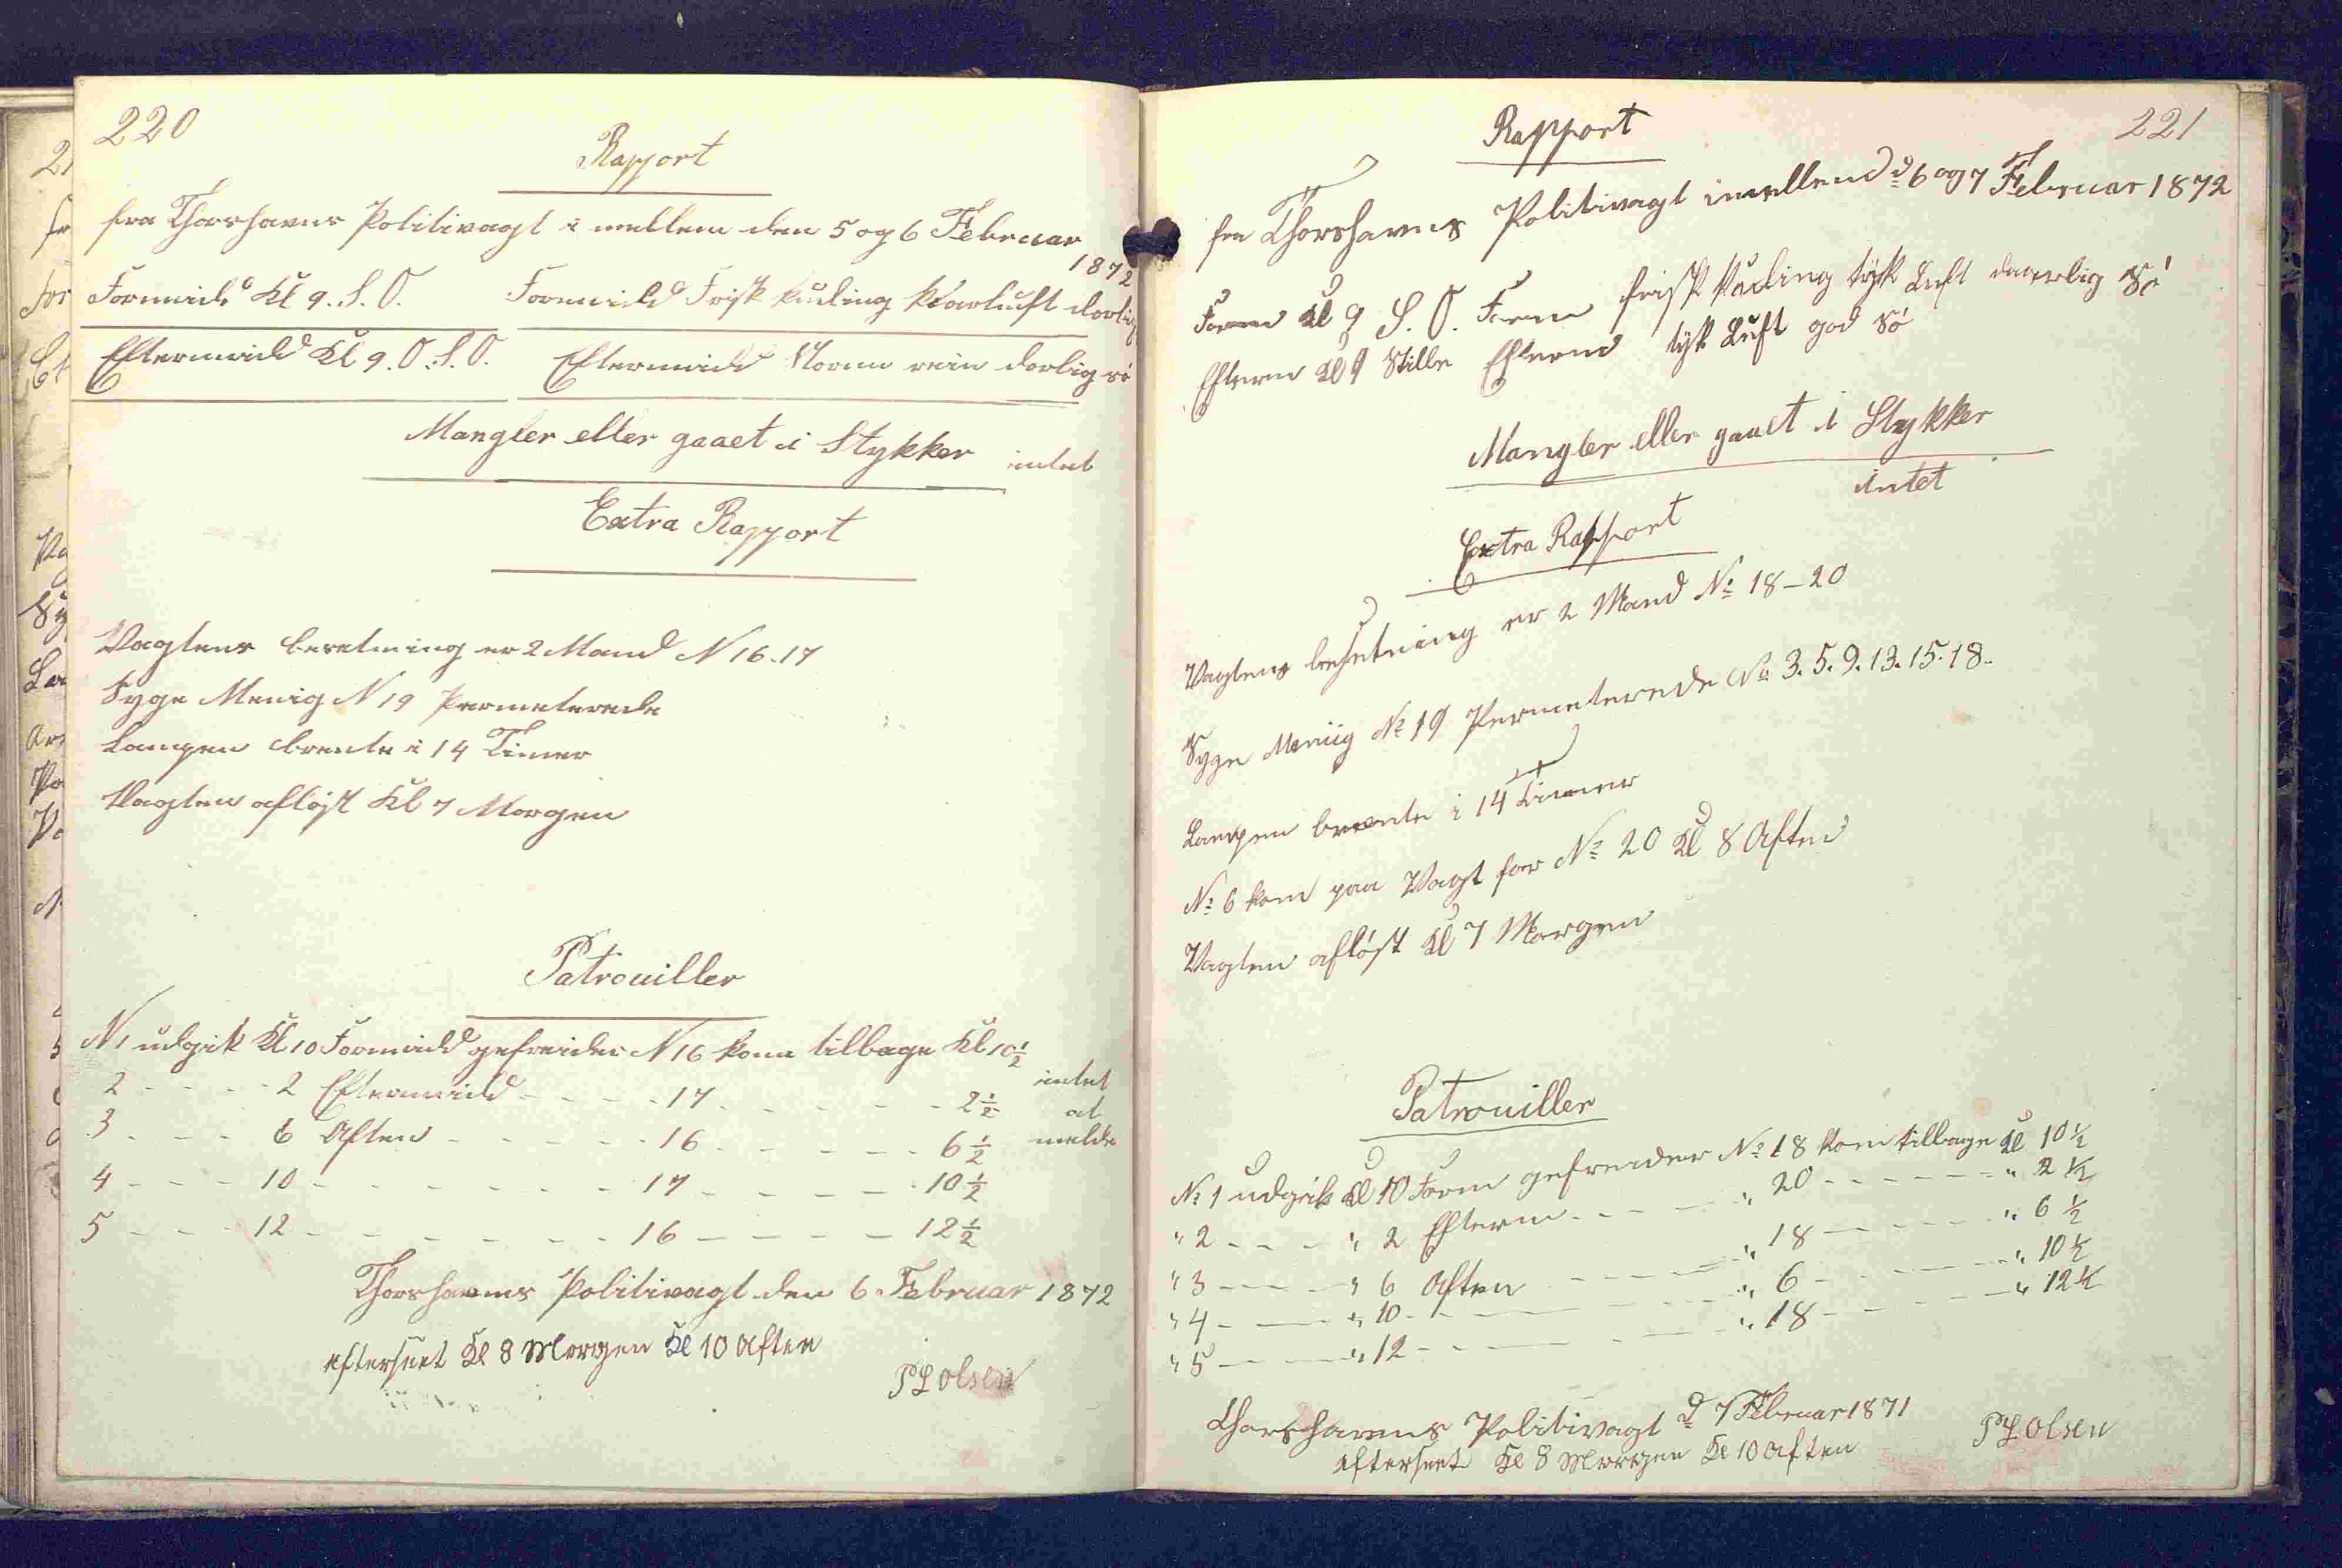 220
Rapport
fra Thorshavns Politivagt i mellem den 5 og 6 Februar
1872
Formidd Kl 9. S. O. Formidd Frisk kuling klarluft dorlig
Eftermidd Kl 9. O. S. O. Eftermidd Storm rein dorlig sö
Mangler eller gaaet i Stykker intet
Extra Rapport
Vagtens besetning er 2 Mand N 16. 17
Syge Menig N 19 Permeterede
Lampen brente i 14 Timer
Vagten afløst Kl 7 Morgen
Patrouiller
N 1 udgik Kl 10 Formidd gefreider N 16 kom tilbage Kl 10½
2 - - - - 2 Eftermidd - - - - 17 - - - - - 2½ intet
3 - - - 6 Aften - - - - - 16 - - - - - 6½ at melde
4 - - - 10 - - - - - - - 17 - - - - - 10½
5 - - - 12 - - - - - - - 16 - - - - - 12½
Thorshavns Politivagt den 6 Februar 1872
efterseet Kl 8 Morgen Kl 10 Aften
P L Olsen
221
Rapport
fra Thorshavns Politivagt imellem d 6 og 7 Februar 1872
Form Kl 9 S. O. Form frisk Kuling tyk Luft daarlig Sö
Efterm Kl 9 Stille Efterm tyk Luft god Sö
Mangler eller gaaet i Stykker
intet
Extra Rapport
Vagtens besetning er 2 Mand No 18 - 20
Syge Meniig No 19 Permeterede No 3. 5. 9. 13. 15. 18.
Lampen brente i 14 Timer
No 6 kom paa Vagt for No 20 Kl 8 Aften
Vagten afløst Kl 7 Morgen
Patrouiller
No 1 udgik Kl 10 Form gefreider No 18 kom tilbage Kl 10½
" 2 - - - " 2 Efterm - - - " 20 - - - - - " 2½
" 3 - - - " 6 Aften - - - " 18 - - - - - " 6½
" 4 - - - " 10 - - - - - " 6 - - - - - " 10½
" 5 - - - " 12 - - - - - " 18 - - - - - " 12½
Thorshavns Politivagt d 7 Februar 1871
efterseet Kl 8 Morgen Kl 10 Aften
P L Olsen